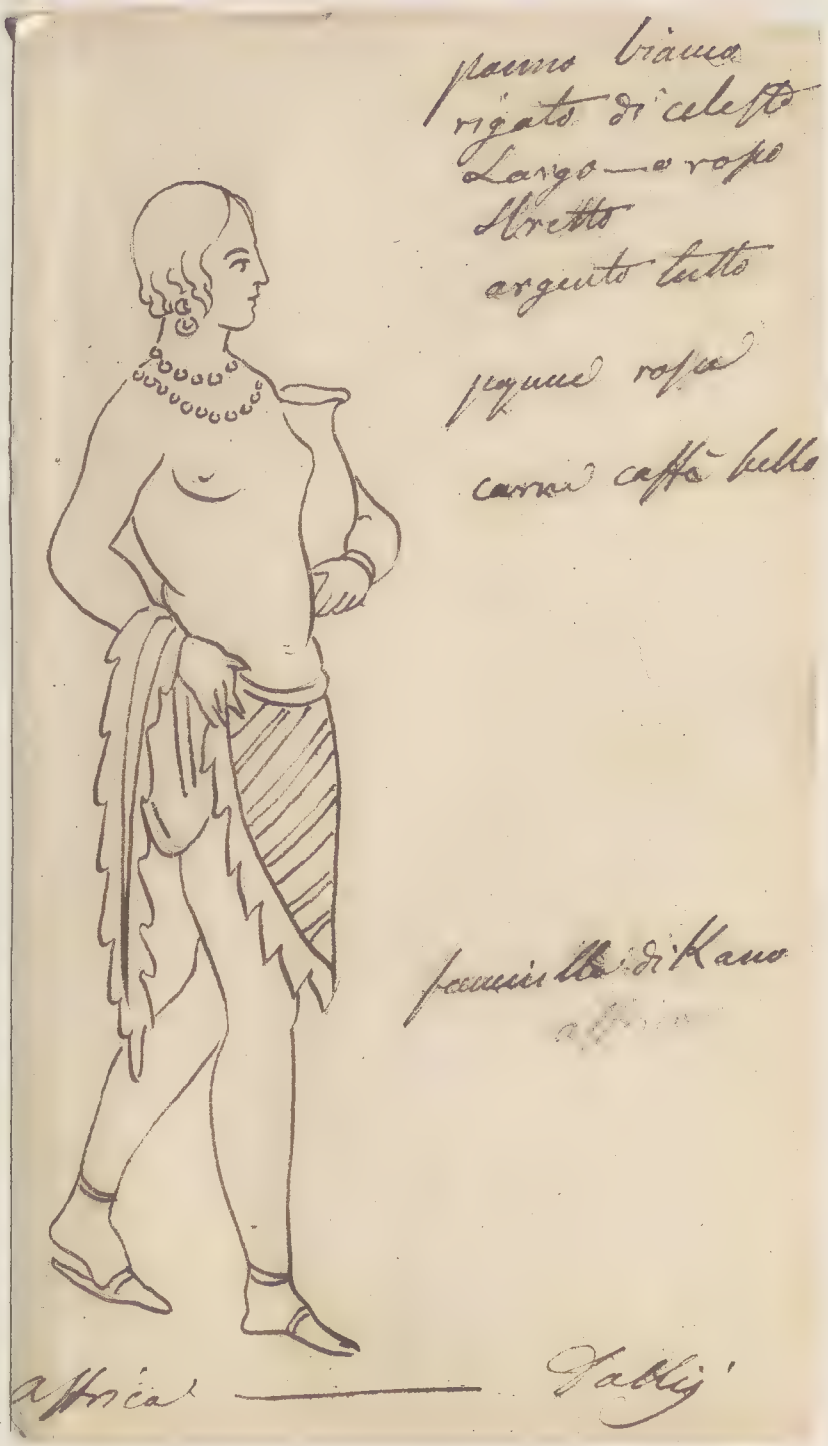 panno bianco
rigato di celeste
Largo — e rosso
stretto
argento tutto
rosse
carne caffè bello
di Kano
affrica
affrica —